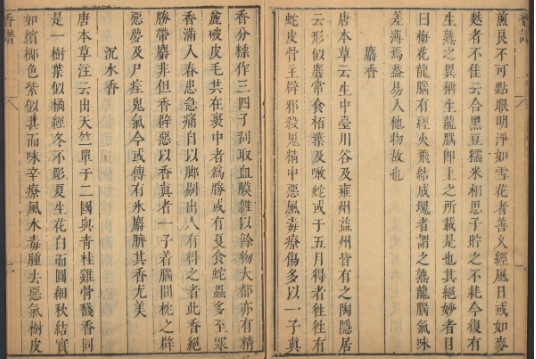 煎良不可點眼明淨如雪花者善久經風日或如麥
麩者不佳云合黑豆糯米相思子貯之不耗今復有
生熟之異稱生龍腦即上之所載是也其絕妙者目
曰梅花龍腦有經火飛結成塊者謂之熟龍腦氣味
差薄焉蓋易入他物故也
麝香
唐本草云生中臺川谷及雍州益州皆有之陶隱居
云形似麞常食栢葉及噉蛇或于五月得者往往有
蛇皮骨主辟邪殺鬼精中惡風毒療傷多以一子真
香分糅作三四子刮取血膜雜以餘物大都亦有精
麄破皮毛共在裹中者為勝或有夏食蛇蟲多至寒
香滿入春患急痛自以脚剔出人有得之者此香絕
勝帶麝非但香辟惡以香真者一子着腦間枕之辟
惡夢及尸疰鬼氣今或傳有水麝臍其香尤美
沉水香
唐本草注云出天竺單于二國與青桂雞骨馢香同
是一樹葉似橘經冬不彫夏生花白而圓細秋結實
如檳榔色紫似葚而味辛療風水毒腫去惡氣樹皮
香譜